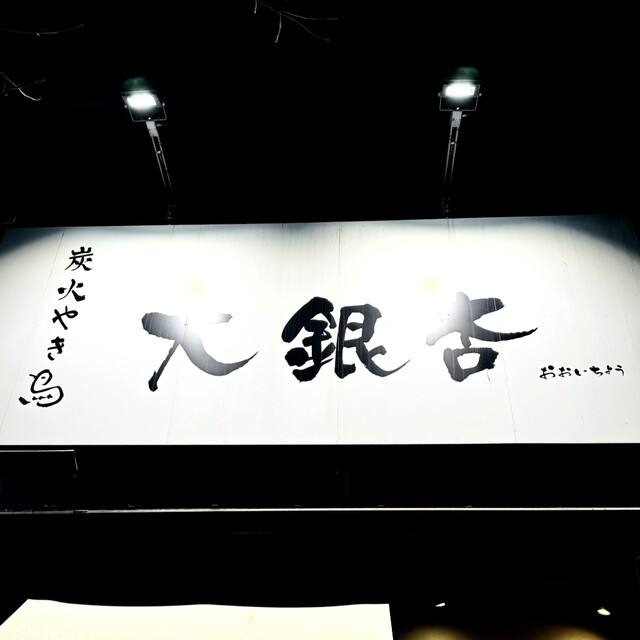 炭火やき鳥
大銀杏
おおいちょう